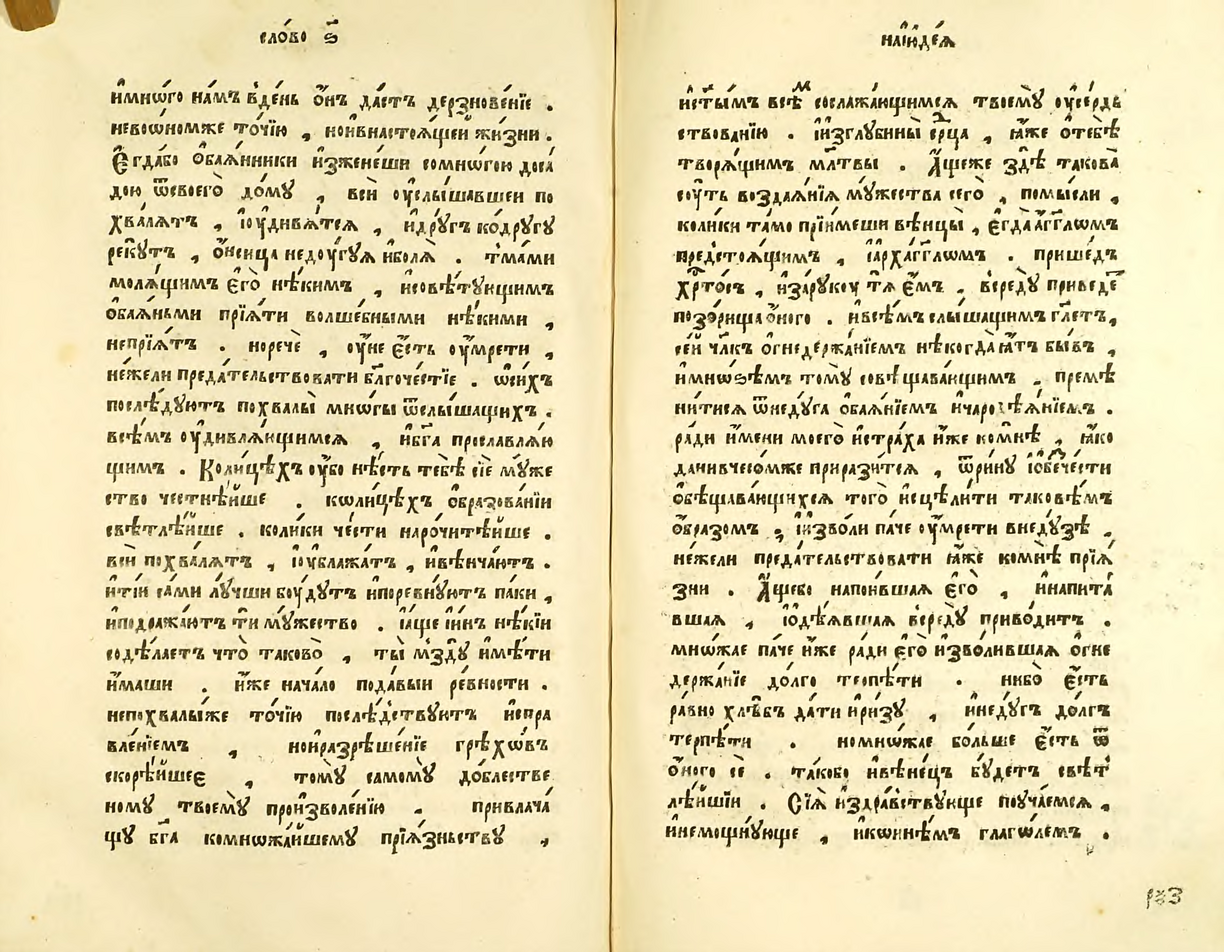 сло́во ѕ҃
и҆мно́го на́мъ в̾де́нь ѻ҆́нъ да́стъ дерзнове́нїе .
невоѡ҆но́мже то́чїю , но҆ивнастоѧ́щей жи́зни .
Е҆гда́бо ѻ҆баѧ́нники и҆зжене́ши сомно́гою доса́
дою ѿсвоегѡ̀ до́мꙋ , всѝ оу҆слы́шавшеи по
хва́лѧтъ , їоу҆дивѧ́тсѧ , и҆дрꙋ́гъ ко́дрꙋгꙋ
рекꙋ́тъ , ѻ҆́нсица недоу́гꙋѧ и҆болѧ̀ . тма́ми
молѧ́щимъ є҆го̀ нѣ́кимъ , исовѣ́тꙋющимъ
ѻ҆баѧ́ньми прїѧ́ти волше́бными нѣ́кими ,
непрїѧ́тъ . норечѐ , оу҆́не є҆́сть оу҆мре́ти ,
не́жели преда́тельствовати бл҃гоче́стїе . ѿси́хъ
послѣ́дꙋютъ похвалы̀ мно́гы ѿслы́шащихъ .
всѣ́мъ оу҆дивлѧ́ющимсѧ , и҆бг҃а прославлѧ́ю
щимъ . Коли́цѣхъ оу҆́бо нѣ́сть тебѣ̀ сїѐ мꙋ́же
ство честнѣ́йше . коли́цѣхъ ѻ҆бразова́нїи
свѣтлѣ́йше . коли́ки че́сти нарочитѣ́йше .
всѝ похва́лѧтъ , їоу҆блажа́тъ , и҆вѣнча́ютъ .
и҆ті́и са́ми лꙋ́чши боу́дꙋтъ и҆поревнꙋ́ютъ па́ки ,
и҆подража́ютъ тѝ мꙋ́жество . їа҆́ще і҆и҆́нъ нѣ́кїи
содѣ́лаетъ что̀ таково̀ , ты̀ мздꙋ̀ и҆мѣ́ти
и҆́маши . и҆́же нача́ло пода́выи ре́вности .
непохвалы́же то́чїю послѣ́дствꙋютъ и҆спра
вле́нїемъ , но҆иразрѣше́нїе грѣхо́въ
скорѣ́йшее , томꙋ̀ самомꙋ̀ до́блестве
номꙋ твоемꙋ̀ произволе́нїю . привлача́
щꙋ бг҃а комножа́йшемꙋ прїѧ́зньствꙋ ,
наїю́деѧ
и҆ст҃ы́мъ всѣ̑м сослажа́ющимсѧ твоемꙋ̀ оу҆се́рдь
ствованїю . і҆изглꙋбины̀ с́рца , ꙗ҆́же ѻ҆тебѣ̀
творѧ́щимъ мл҃твы . А҆́щеже здѣ̀ такова̀
сꙋ́ть воздаѧ́нїѧ мꙋ́жества сего̀ , помы́сли ,
коли́ки та́мо прїи́меши вѣнцы̀ , є҆гда̀а҆́гг҃лѡмъ
предстоѧ́щимъ , їа҆рха́гг҃лѡмъ . прише́дъ
хр҃то́съ , и҆зарꙋ́коу тѧ̀ є҆́мъ . всредꙋ̀ приведе́т
позо́рища ѻ҆́ного . и҆всѣ́мъ слы́шащимъ гл҃етъ ,
се́й чл҃къ огнедержа́нїемъ нѣ́когда ꙗ҆́тъ бы́въ ,
и҆мно́ѕѣмъ томꙋ̀ совѣщава́ющимъ . премѣ
ни́тисѧ ѿнедꙋ́га ѻ҆баѧ́нїемъ и҆чародѣѧ́нїемъ .
ра́ди и҆́мени моего̀ и҆стра́ха и҆́же комнѣ̀ , ꙗ҆́ко
данивчесо́мже прирази́тсѧ , ѿри́нꙋ ї҆ѻбече́сти
ѻ҆бѣщава́ющихсѧ того̀ и҆сцѣли́ти таковѣ́мъ
ѻ҆́бразомъ , і҆изво́ли па́че оу҆мре́ти внедꙋ́зѣ ,
не́жели преда́тельствовати ꙗ҆́же комнѣ̀ прїѧ́
зни . А҆́щебо напои́вшаѧ є҆го̀ , и҆напита́
вшаѧ , ї҆ѻдѣ́ѧвшаѧ всредꙋ̀ приво́дитъ .
мно́жае па́че и҆́же ра́ди є҆го̀ и҆зво́лившаѧ огне
держа́нїе до́лго терпѣ́ти . нибо є҆́сть
ра́вно хлѣ́бъ да́ти и҆ри́зꙋ , и҆недꙋ́гъ до́лгъ
терпѣ́ти . номно́жае бо́льше є҆́сть ѿ
ѻ҆́ного сѐ . та́кобо и҆вѣне́цъ бꙋ́детъ свѣт
лѣ́йшїи . Сїѧ̑ и҆здра́вствꙋюще поꙋча́емсѧ ,
и҆немощнꙋ́юще , и҆коинѣ́мъ глаго́лемъ .
рѯз